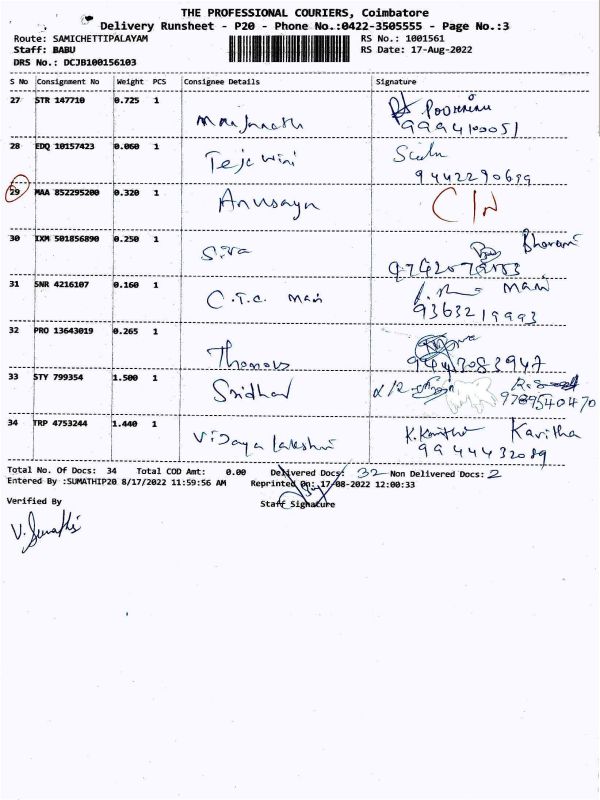 THE PROFESSIONAL COURIERS, Coimbatore
Delivery Runsheet - P20 - Phone No.:0422-3505555 - Page No.:3
Route: SAMICHETTIPALAYAM RS No.: 1001561
Staff: BABU RS Date: 17-Aug-2022
DRS No.: DCJB100156103
S No Consignment No Weight PCS Consignee Details Signature
27 STR 147710 0.725 1
9994100051
28 EDQ 10157423 0.060 1 Tejewini
9442290639
29 MAA 852295200 0.320 1 Anusaya C/N
30 IXM 501856890 0.250 1 Siva Bhavani
31 SNR 4216107 0.160 1 C.T.C. Mani Mani
9363219993
32 PRO 13643019 0.265 1 Thomas
9443083947
33 STY 799354 1.500 1 Sridhar
9789540470
34 TRP 4753244 1.440 1 Vijaya Lakshmi K.Kavitha Kavitha
9944432089
Total No. Of Docs: 34 Total COD Amt: 0.00 Delivered Docs: 32 Non Delivered Docs: 2
Entered By :SUMATHIP20 8/17/2022 11:59:56 AM Reprinted On: 17-08-2022 12:00:33
Verified By Staff Signature
V. Sumathi